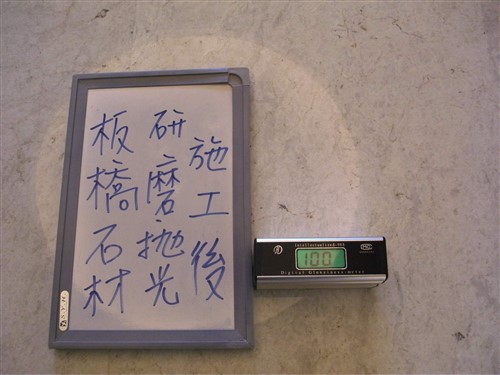 板橋石材
研磨拋光
施工後
100
Digital Glossmeter-meter